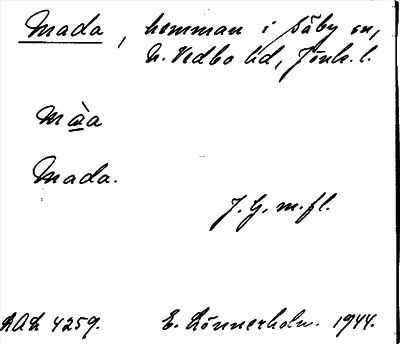 Mada, hemman i Säby sn,
N. Vedbo hd, Jönk. l.
Måa
Mada.
J. G. m. fl.
E. Lönnerholm. 1944.